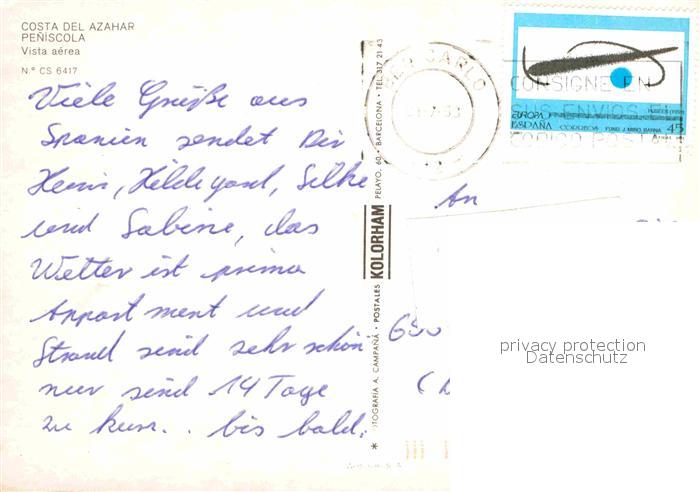 COSTA DEL AZAHAR
PEÑISCOLA
Vista aérea
N.º CS 6417
Viele Grüße aus
Spanien sendet Dir
Heini, Hildegard, Silke
und Sabine, das
Wetter ist prima
Appartment und
Strand sind sehr schön
nur sind 14 Tage
zu kurz.. bis bald.
* FOTOGRAFIA A. CAMPAÑÁ • POSTALES KOLORHAM PELAYO, 60 • BARCELONA • TEL. 317 21 43
CARLO
CONSIGNE EN
SUS ENVIOS EL
CODIGO POSTAL
EUROPA
ESPAÑA CORREOS
45
An
privacy protection
Datenschutz